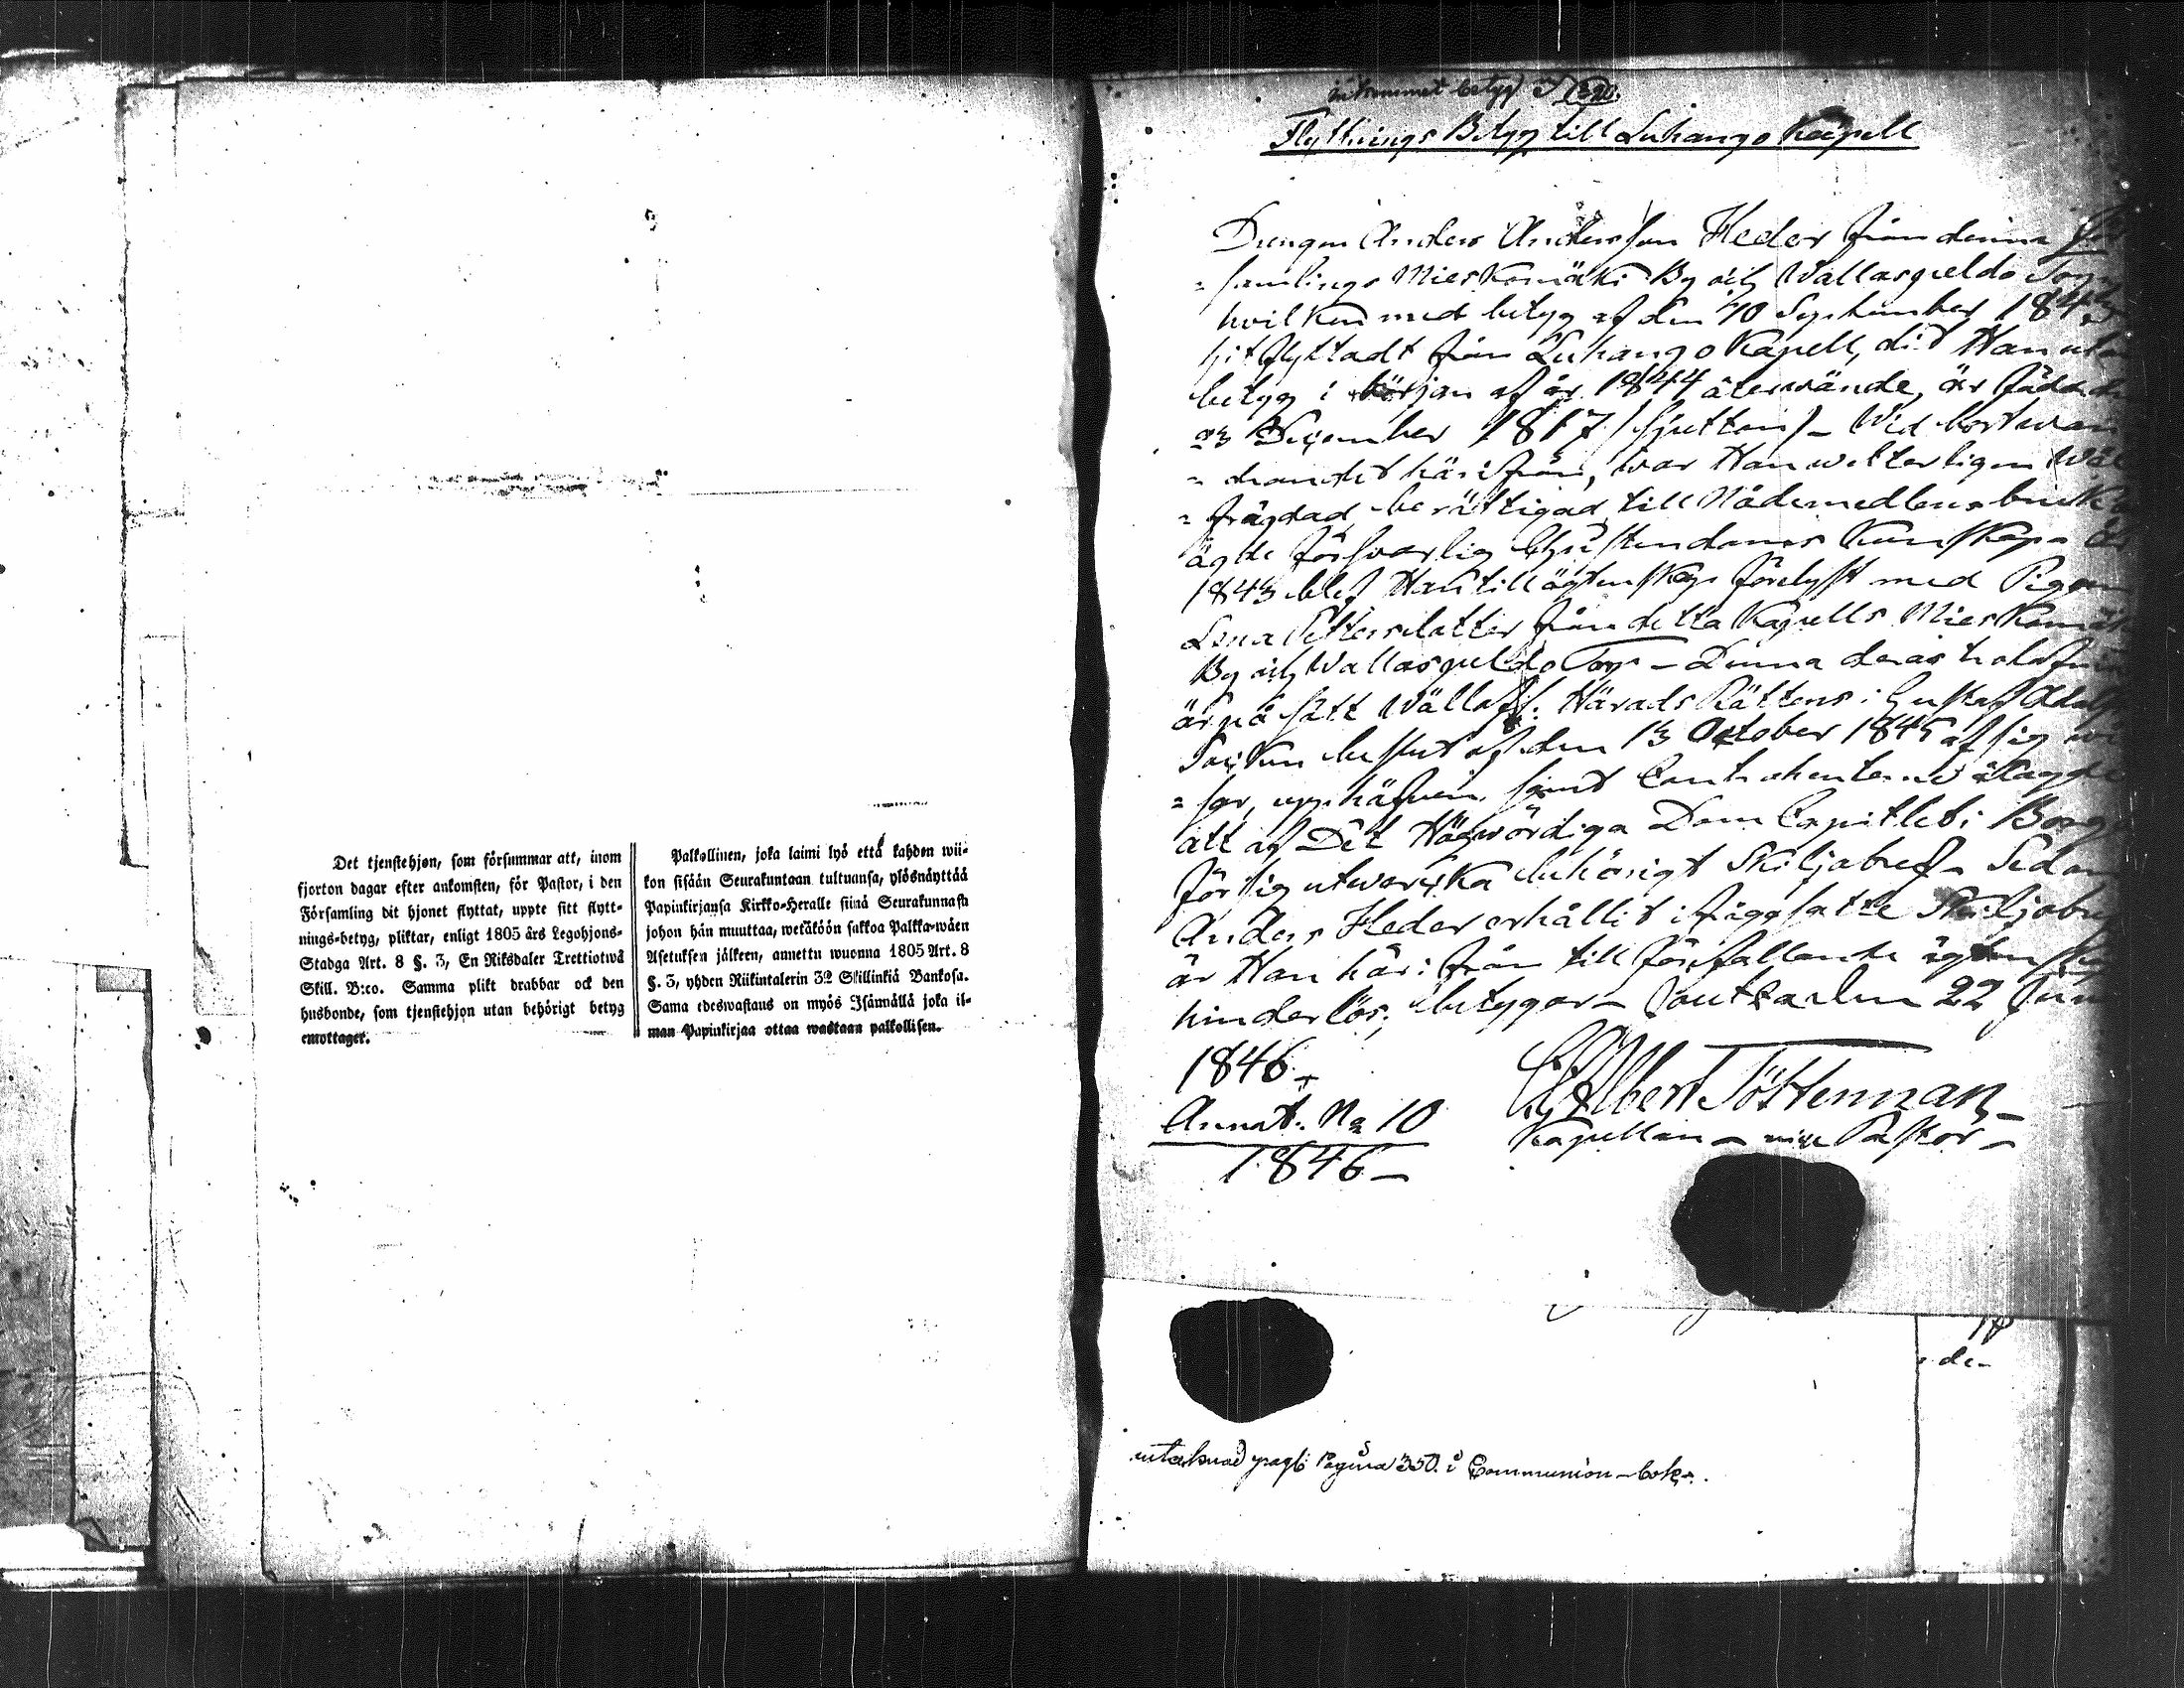 Det tjenstehjon, som försummar att, inom
fjorton dagar efter ankomsten, för Pastor, i den
Församling dit hjonet flyttat, uppte sitt flytt-
nings-betyg, pliktar, enligt 1805 års Legohjons-
Stadga Art. 8 §. 3, En Riksdaler Trettiotwå
Skill. B:co. Samma plikt drabbar ock den
husbonde, som tjenstehjon utan behörigt betyg
emottager.
Palkollinen, joka laimi lyö että kahden wii-
kon sisään Seurakuntaan tultuansa, ylösnäyttää
Papinkirjansa Kirkko-Heralle siinä Seurakunnasa
johon hän muuttaa, wetäköön sakkoa Palkka-wäen
Asetuksen jälkeen, annettu wuonna 1805 Art. 8
§. 3, yhden Riikintalerin 32 Skillinkiä Bankosa.
Sama edeswastaus on myös Isännällä joka il-
man Papinkirjaa ottaa wastaan palkollisen.
inkommet betyg
Flyttnings Betyg till Luhango Kapell
Drengen Anders Andersson Heder från denna
=samlings Mieskomäki By och Wallaspeldo Torp
hvilken med betyg af den 10 September 184
hitflyttadt från Luhango Kapell, dit Han utan
betyg i början af år 1844 återwände, är född
23 December 1817 (sjutton) - Vid bortwan
=drandet härifrån, war Han wetterligen wäl
=frägdad, berättigad till Nådemedlens bruk
ägde försvarlig Christendoms Kunskap -
1843 blef Han till ägtenskap förelyst med Pigan
Lena Pettersdotter från detta Kapells Mieskomäki
By och Wallaspeldo Torp - Denna deras trolofning
är på sätt Wällofl: Härads Rättens i Gustaf Adolfs
Socken beslut af den 13 October 1845 af sig wi
=sar, upphäfven samt Contrahenterne ålagde
att af Det Högwördiga Dom Capitlet i Borgå
för sig utwerka behörigt Skiljobref - Sedan
Anders Heder erhållit ifrågsatte Skiljobref
är Han härifrån till förefallande ägtenskap
hinderlös; betygar - Joutsa den 22 Juni
1846 -
Annot. No 10
1846 -
Albert Tötterman -
Kapellan - Pastor -
de-
Pagina 350. i Communion-boken.